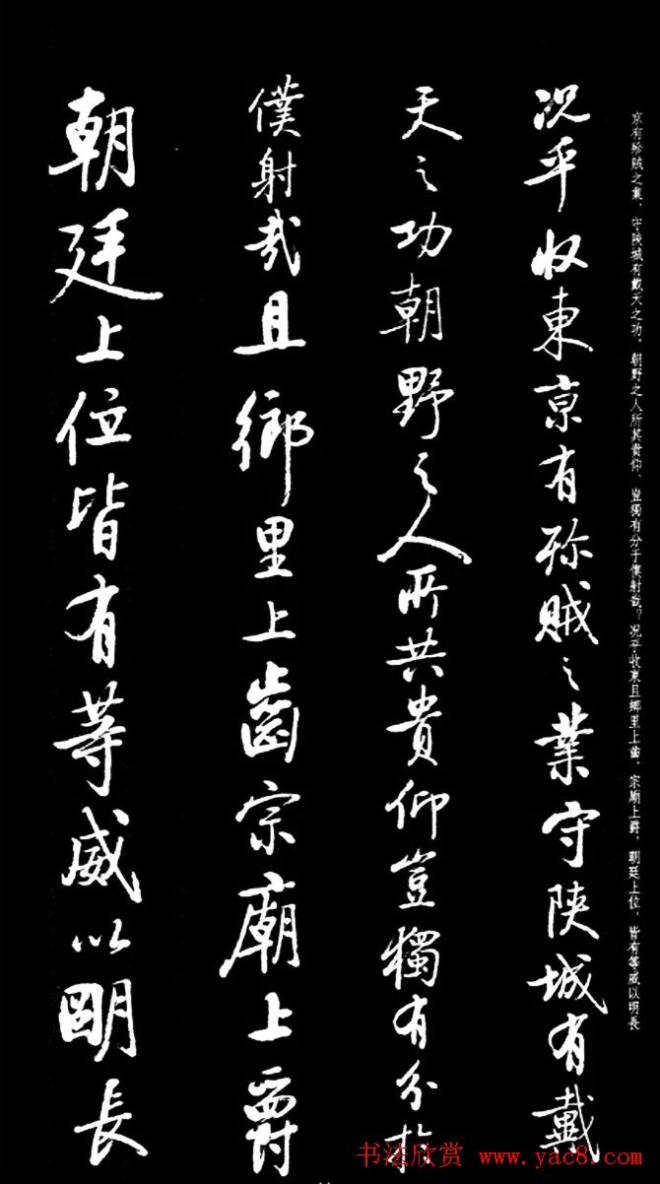 京有殄賊之業，守陝城有戴天之功，朝野之人所共貴仰，豈獨有分于僕射哉？况平收東且鄉里上齒，宗廟上爵，朝廷上位，皆有等威以明長
况平收東京有殄賊之業守陝城有戴
天之功朝野之人所共貴仰豈獨有分於
僕射哉且鄉里上齒宗廟上爵
朝廷上位皆有等威以明長
书法欣赏 www.yac8.com